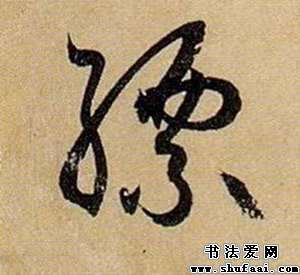 縹
书法爱网
www.shufaai.com